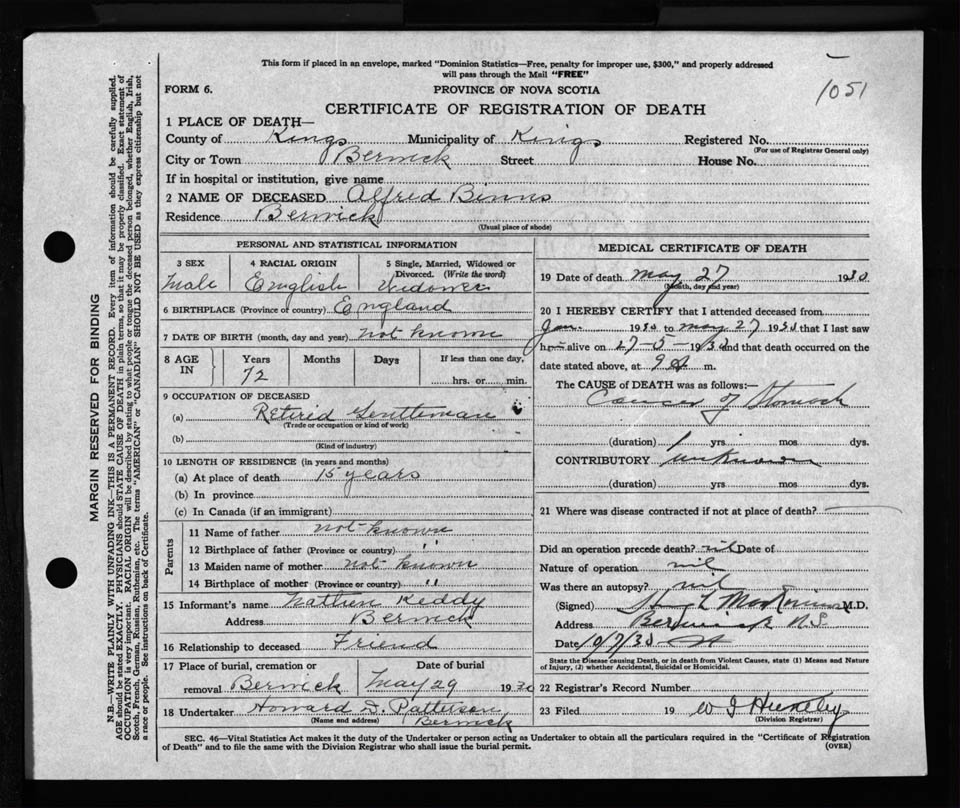 This form if placed in an envelope, marked "Dominion Statistics—Free, penalty for improper use, $300," and properly addressed
will pass through the Mail "FREE"
1051
FORM 6.
PROVINCE OF NOVA SCOTIA
CERTIFICATE OF REGISTRATION OF DEATH
1 PLACE OF DEATH—
County of Kings Municipality of Kings Registered No.
(For use of Registrar General only)
City or Town Berwick Street House No.
If in hospital or institution, give name
2 NAME OF DECEASED Alfred Binns
Residence Berwick
(Usual place of abode)
PERSONAL AND STATISTICAL INFORMATION
3 SEX 4 RACIAL ORIGIN 5 Single, Married, Widowed or
Divorced. (Write the word)
Male English Widower
6 BIRTHPLACE (Province or country) England
7 DATE OF BIRTH (month, day and year) not known
8 AGE IN Years Months Days If less than one day,
72 hrs. or min.
9 OCCUPATION OF DECEASED
(a) Retired Gentleman
(Trade or occupation or kind of work)
(b)
(Kind of industry)
10 LENGTH OF RESIDENCE (in years and months)
(a) At place of death 15 years
(b) In province
(c) In Canada (if an immigrant)
Parents
11 Name of father not known
12 Birthplace of father (Province or country) "
13 Maiden name of mother not known
14 Birthplace of mother (Province or country) "
15 Informant's name Keddy
Address Berwick
16 Relationship to deceased Friend
17 Place of burial, cremation or Date of burial
removal Berwick May 29 1930
18 Undertaker Howard
(Name and address) Berwick
MEDICAL CERTIFICATE OF DEATH
19 Date of death May 27 1930
(Month, day and year)
20 I HEREBY CERTIFY that I attended deceased from
Jan. 1930 to May 27 1930 that I last saw
h alive on 27-5-1930 and that death occurred on the
date stated above, at 9 m.
The CAUSE of DEATH was as follows:—
Cancer of Stomach
(duration) 1 yrs mos dys.
CONTRIBUTORY unknown
(duration) yrs. mos. dys.
21 Where was disease contracted if not at place of death?
Did an operation precede death? nil Date of
Nature of operation nil
Was there an autopsy? nil
(Signed) M.D.
Address Berwick N.S.
Date 10/7/30
State the Disease causing Death, or in death from Violent Causes, state (1) Means and Nature
of Injury, (2) whether Accidental, Suicidal or Homicidal.
22 Registrar's Record Number
23 Filed 19
(Division Registrar)
SEC. 46—Vital Statistics Act makes it the duty of the Undertaker or person acting as Undertaker to obtain all the particulars required in the "Certificate of Registration
of Death" and to file the same with the Division Registrar who shall issue the burial permit.
(OVER)
MARGIN RESERVED FOR BINDING
N.B.—WRITE PLAINLY WITH UNFADING INK—THIS IS A PERMANENT RECORD. Every item of information should be carefully supplied.
AGE should be stated EXACTLY. PHYSICIANS should STATE CAUSE OF DEATH in plain terms, so that it may be properly classified. Exact statement of
OCCUPATION is very important. RACIAL ORIGIN will be described by stating to what people or tongue the deceased person belonged, whether English, Irish,
Scotch, French, German, Russian, Ruthenian, etc. The terms "AMERICAN" or "CANADIAN" SHOULD NOT BE USED as they express citizenship but not
a race or people. See instructions on back of Certificate.